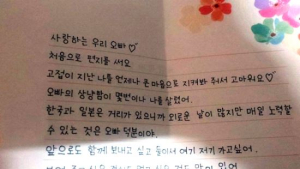 사랑하는 우리 오빠♡
처음으로 편지를 써요
고집이 지난 나를 언제나 큰 마음으로 지켜봐 줘서 고마워요♡
오빠의 상냥함이 몇번이나 나를 살렸어.
한국과 일본은 거리가 있으니까 외로운 날이 많지만 매일 노력할
수 있는 것은 오빠 덕분이야.
앞으로도 함께 보내고 싶고 둘이서 여기 저기 가고싶어.